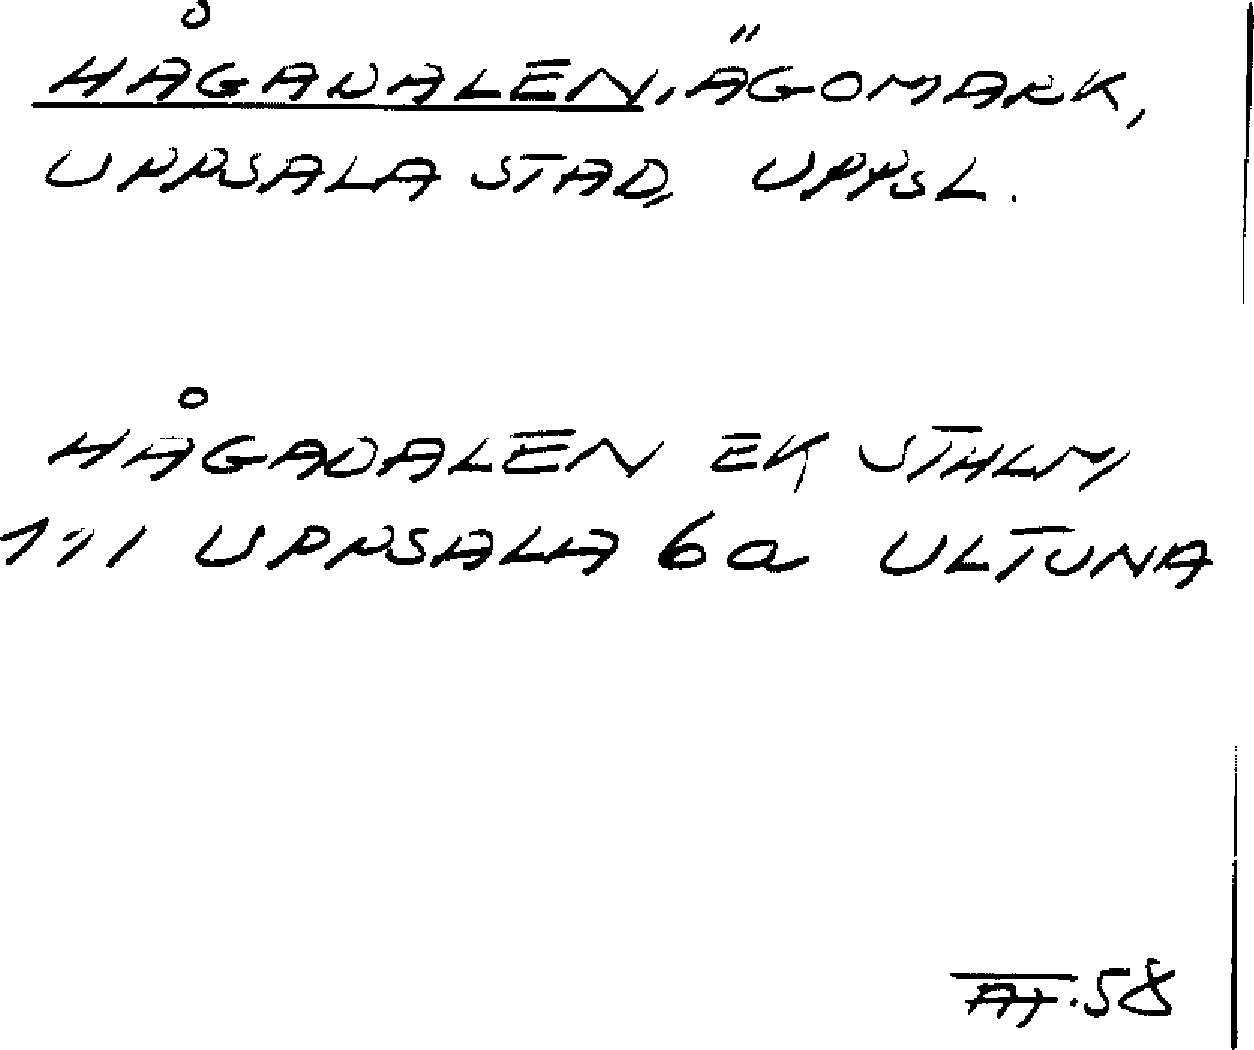 HÅGADALEN, ÄGOMARK,
UPPSALA STAD, UPPSL.
HÅGADALEN EK STHLM
111 UPPSALA 6a ULTUNA
58